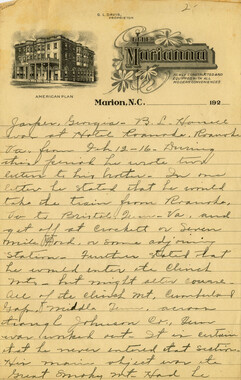 2
S. L. DAVIS,
PROPRIETOR
THE
Marianna
AMERICAN PLAN
Marion, N.C. 192
Jasper, Georgia - B. L. Howell
was at Hotel Roanoke, Roanoke
Va. from Feb 12-16. During
this period he wrote two
letters to his brother. In one
letter he stated that he would
take the train from Roanoke,
Va to Bristol, Tenn-Va. and
get off at Crockett or Seven
Mile Ford, or some adjoining
station. Further stated that
he would enter the Clinch
Mts. but might alter course.
All of the Clinch Mt, Cumberland
Gap, Middle Tenn. across
through Johnson Co, Tenn
was worked out. It is certain
that he never entered that section.
His main object was the
Great Smoky Mt. Had he